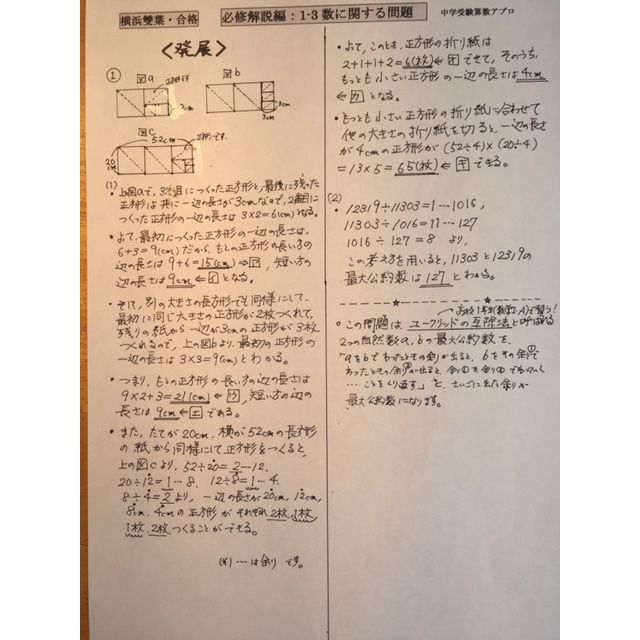 横浜雙葉・合格
必修解説編：1-3 数に関する問題
中学受験算数アプロ
〈発展〉
①
図a
正方形です
3cm
図b
3cm
3cm
図c
52cm
正方形です。
20cm
(1)
・上図aで、3番目につくった正方形と、最後に残った
正方形は共に一辺の長さが3cmなので、2番目に
つくった正方形の一辺の長さは 3×2=6(cm)となる。
・よって、最初につくった正方形の一辺の長さは、
6+3=9(cm)だから、もとの正方形の長い方の
辺の長さは 9+6=15(cm)⇒ア、短い方の
辺の長さは 9cm ⇐イ となる。
・そして、別の大きさの長方形でも同様にして、
最初に同じ大きさの正方形が2枚つくれて、
残りの紙から一辺が3cmの正方形が3枚
つくれるので、上の図bより、最初の正方形の
一辺の長さは 3×3=9(cm)とわかる。
・つまり、もとの正方形の長い方の辺の長さは
9×2+3=21(cm)⇐ウ、短い方の辺の
長さは 9cm ⇐エ である。
・また、たてが20cm、横が52cmの長方形
の紙から同様にして正方形をつくると、
上の図cより、52÷20=2…12、
20÷12=1…8、12÷8=1…4、
8÷4=2より、一辺の長さが20cm、12cm、
8cm、4cmの正方形がそれぞれ2枚、1枚、
1枚、2枚つくることができる。
(※)…は余りです。
・よって、このとき、正方形の折り紙は
2+1+1+2=6(枚)⇐オ できて、そのうち、
もっとも小さい正方形の一辺の長さは4cm
⇐カ となる。
・もっとも小さい正方形の折り紙に合わせて
他の大きさの折り紙を切ると、一辺の長さ
が4cmの正方形が(52÷4)×(20÷4)
=13×5=65(枚)⇐キ できる。
(2)
・12319÷11303=1…1016、
11303÷1016=11…127
1016÷127=8 より、
この考えを用いると、11303と12319の
最大公約数は 127 とわかる。
高校1年生(数学A)で習う！
○この問題はユークリッドの互除法と呼ばれ
2つの自然数a、bの最大公約数を、
「aをbでわったときの余りが出ると、bをその余り①で
わったときの余り②が出ると、余り①を余り②でわって…
…ことをくり返す」と、さいごに出た余りが
最大公約数になります。